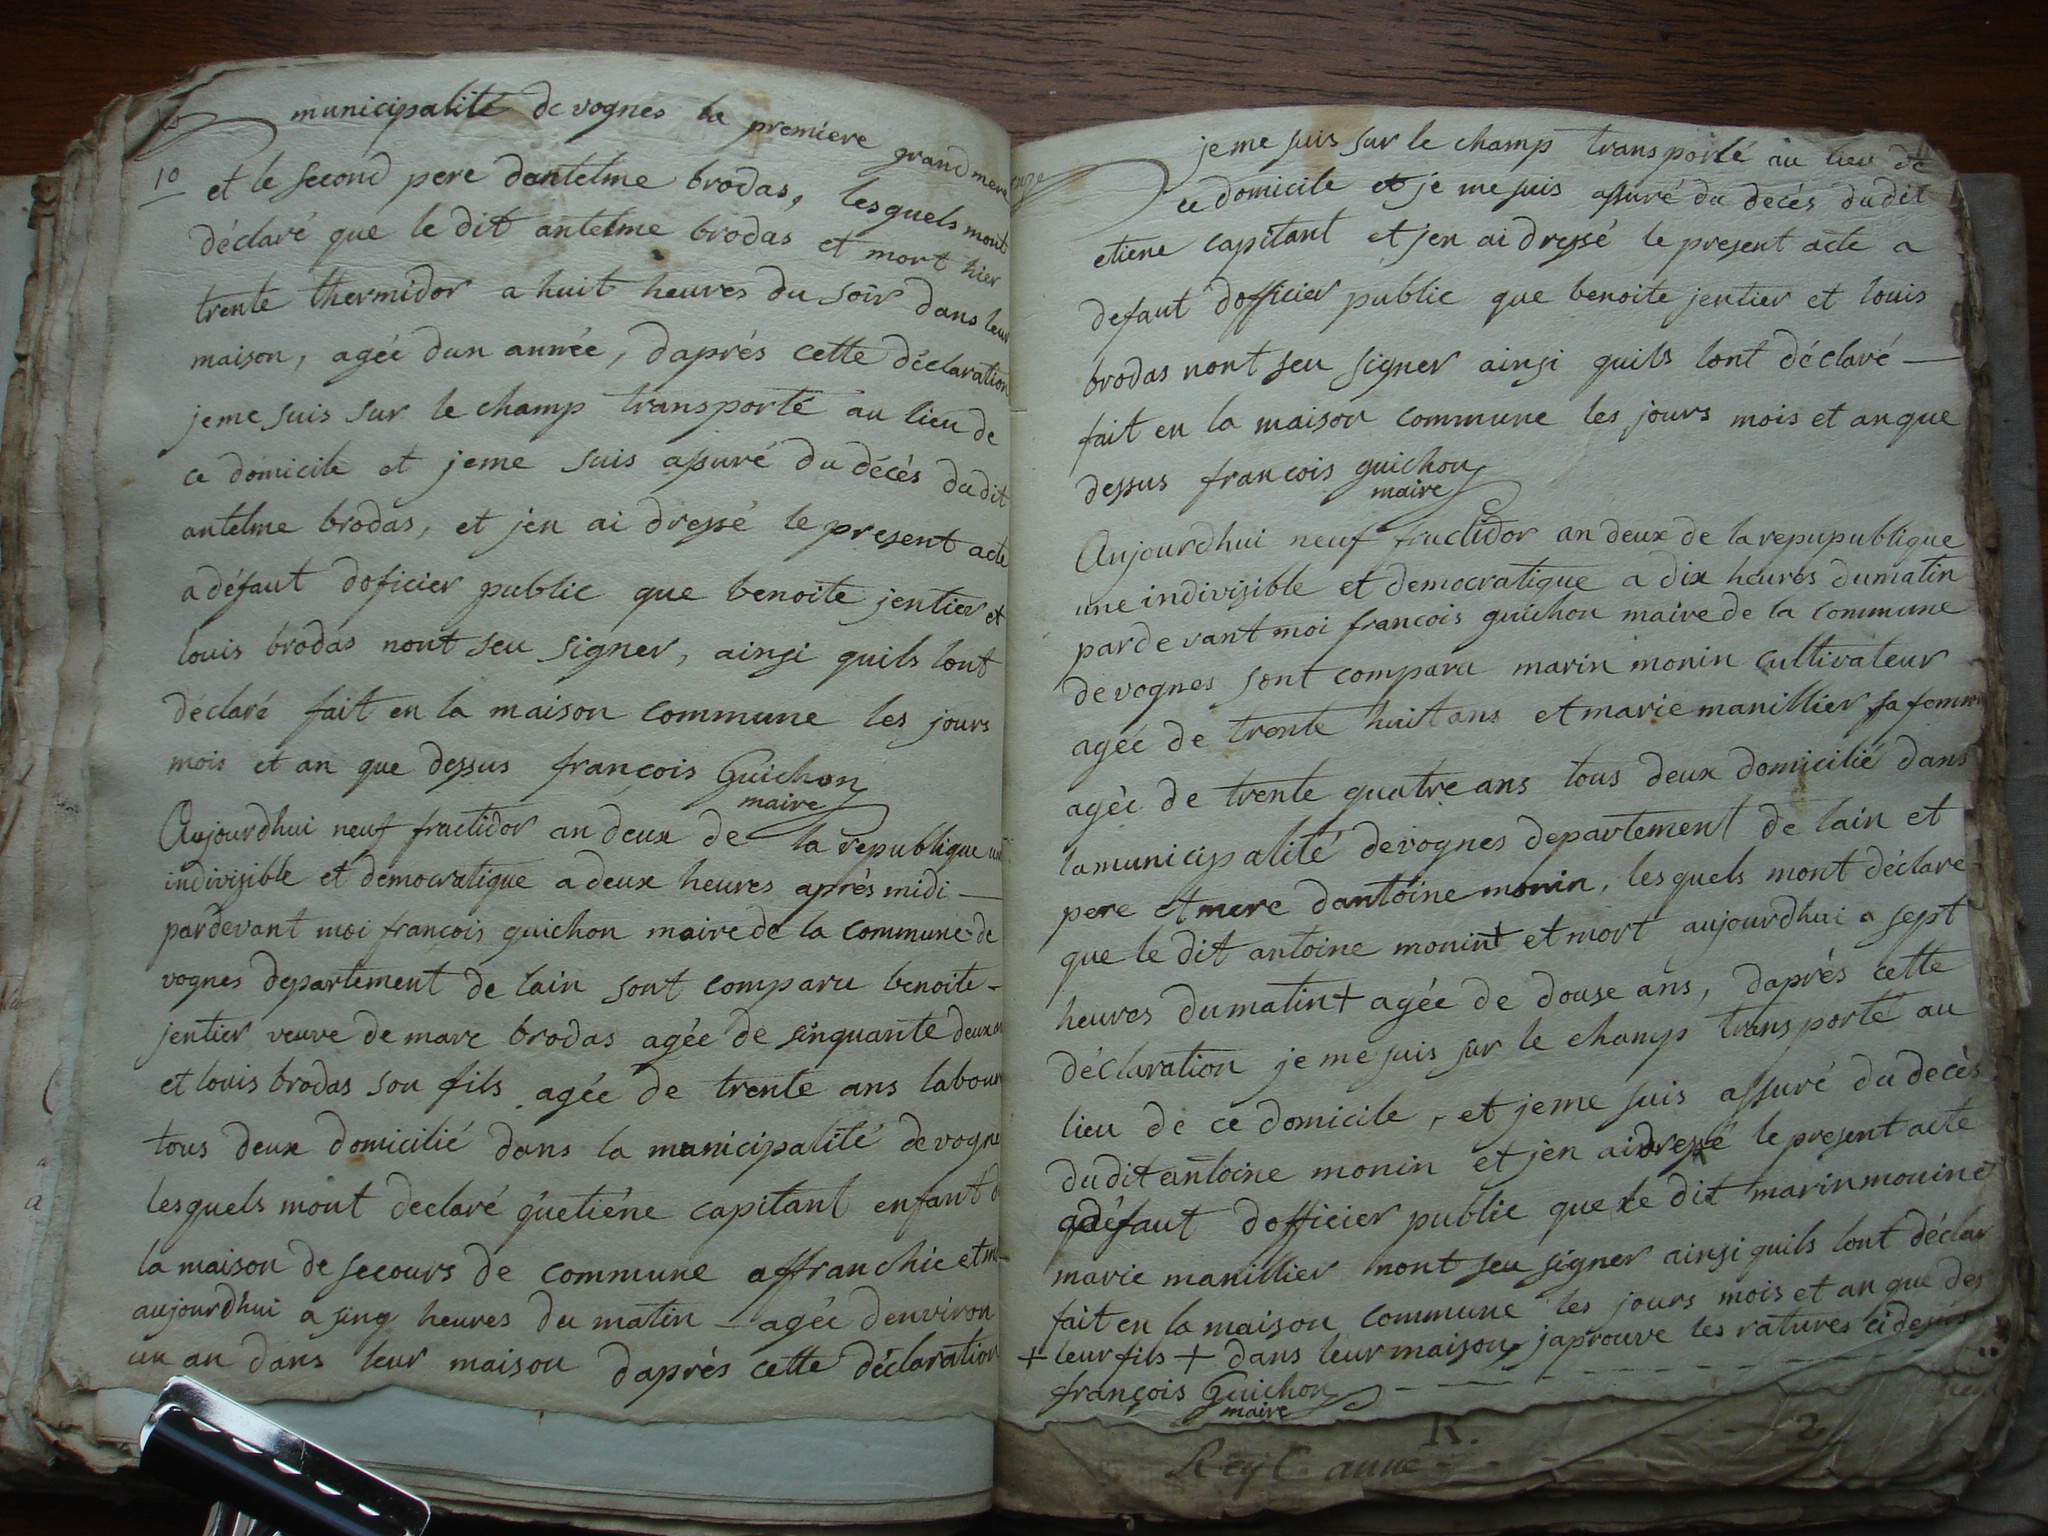 municipalité de vognes la premiere grand mere
10 et le second pere dantelme brodas, lesquels mont
déclaré que le dit antelme brodas et mort hier
trente thermidor a huit heures du soir dans leur
maison, agée dun année, daprés cette déclaration
jeme suis sur le champ transporté au lieu de
ce domicile et jeme suis assuré du décès du dit
antelme brodas, et jen ai dressé le present acte
a défaut doficier public que benoite jentier et
louis brodas nont seu signer, ainsi quils lont
déclaré fait en la maison commune les jours
mois et an que dessus françois Guichon
maire
Aujourdhui neuf fructidor an deux de la république une
indivisible et democratique a deux heures aprés midi —
pardevant moi francois guichon maire de la commune de
vognes departement de lain sont comparu benoite
jentier veuve de marc brodas agée de sinquante deux
et louis brodas son fils agée de trente ans labour
tous deux domicilié dans la municipalité de vogne
lesquels mont declaré quetiéne capitant enfant de
la maison de secours de commune affranchie et
aujourdhui a sinq heures du matin — agée denviron
un an dans leur maison daprés cette déclaration
je me suis sur le champ transporté au lieu de
ce domicile et je me suis assuré du decés du dit
etiene capitant et jen ai dressé le present acte a
defaut dofficier public que benoite jentier et louis
brodas nont seu signer ainsi quils lont déclaré —
fait en la maison commune les jours mois et an que
dessus francois guichon
maire
Aujourdhui neuf fructidor an deux de la repupublique
une indivisible et democratique a dix heures du matin
pardevant moi francois guichon maire de la commune
de vognes sont comparu marin monin cultivateur
agée de trente huit ans et marie manillier sa femme
agée de trente quatre ans tous deux domicilié dans
la municipalité de vognes departement de lain et
pere et mere dantoine monin, lesquels mont déclaré
que le dit antoine monin + et mort aujourdhui a sept
heures du matin + agée de douse ans, daprés cette
déclaration je me suis sur le champ transporté au
lieu de ce domicile, et jeme suis assuré du decès
du dit antoine monin et jen ai dressé le present acte
a défaut dofficier public que le dit marin monin et
marie manillier nont seu signer ainsi quils lont déclar
fait en la maison commune les jours mois et an que des
+ leur fils + dans leur maison japrouve les ratures ci desus
françois Guichon
maire
R. 2
anne